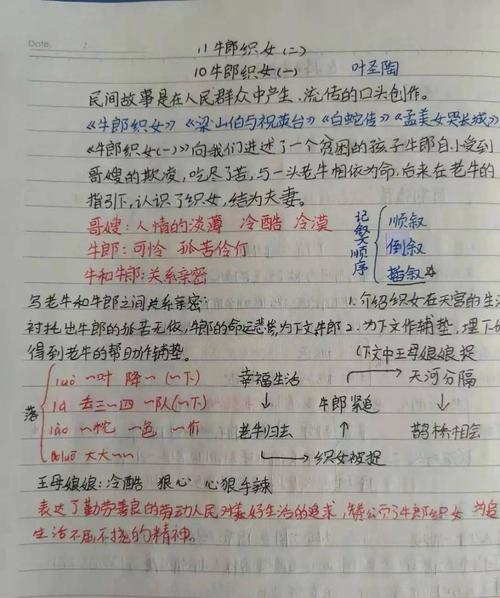 Date.
11牛郎织女(二)
10牛郎织女(一) 叶圣陶
民间故事是在人民群众中产生、流传的口头创作。
《牛郎织女》《梁山伯与祝英台》《白蛇传》《孟美女哭长城》
《牛郎织女(一)》向我们讲述了一个贫困的孩子牛郎自小受到
哥嫂的欺凌,吃尽了苦,与一头老牛相依为命,后来在老牛的
指引下,认识了织女,结为夫妻。
哥嫂:人情的淡薄 冷酷 冷漠
牛郎:可怜 孤苦伶仃
牛和牛郎:关系亲密
记叙文顺序
顺叙
倒叙
插叙
写老牛和牛郎之间关系亲密:
衬托出牛郎的孤苦无依,牛郎的命运悲惨,为下文牛郎
得到老牛的帮助作铺垫。
1.介绍织女在天宫的生
2.为下文作铺垫,埋下
(下文中王母娘娘捉
落
luò 一叶 降一 (一下)
là 丢三一四 一队(一下)
lào 一枕 一色 一价
大大一一
幸福生活 天河分隔
↓ 牛郎紧追 ↓
老牛归去 ↑ 鹊桥相会
织女被捉
王母娘娘:冷酷 狠心 心狠手辣
表达了勤劳善良的劳动人民对美好生活的追求,
了牛郎织女 为
生活不屈不挠的精神。